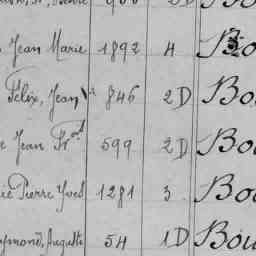 Jean Marie 1892 4 Bo
Félix, Jean 846 2D Bo
Jean Fr 599 2D Bo
Pierre Yves 1281 3 Bo
Auguste 54 1D Bou